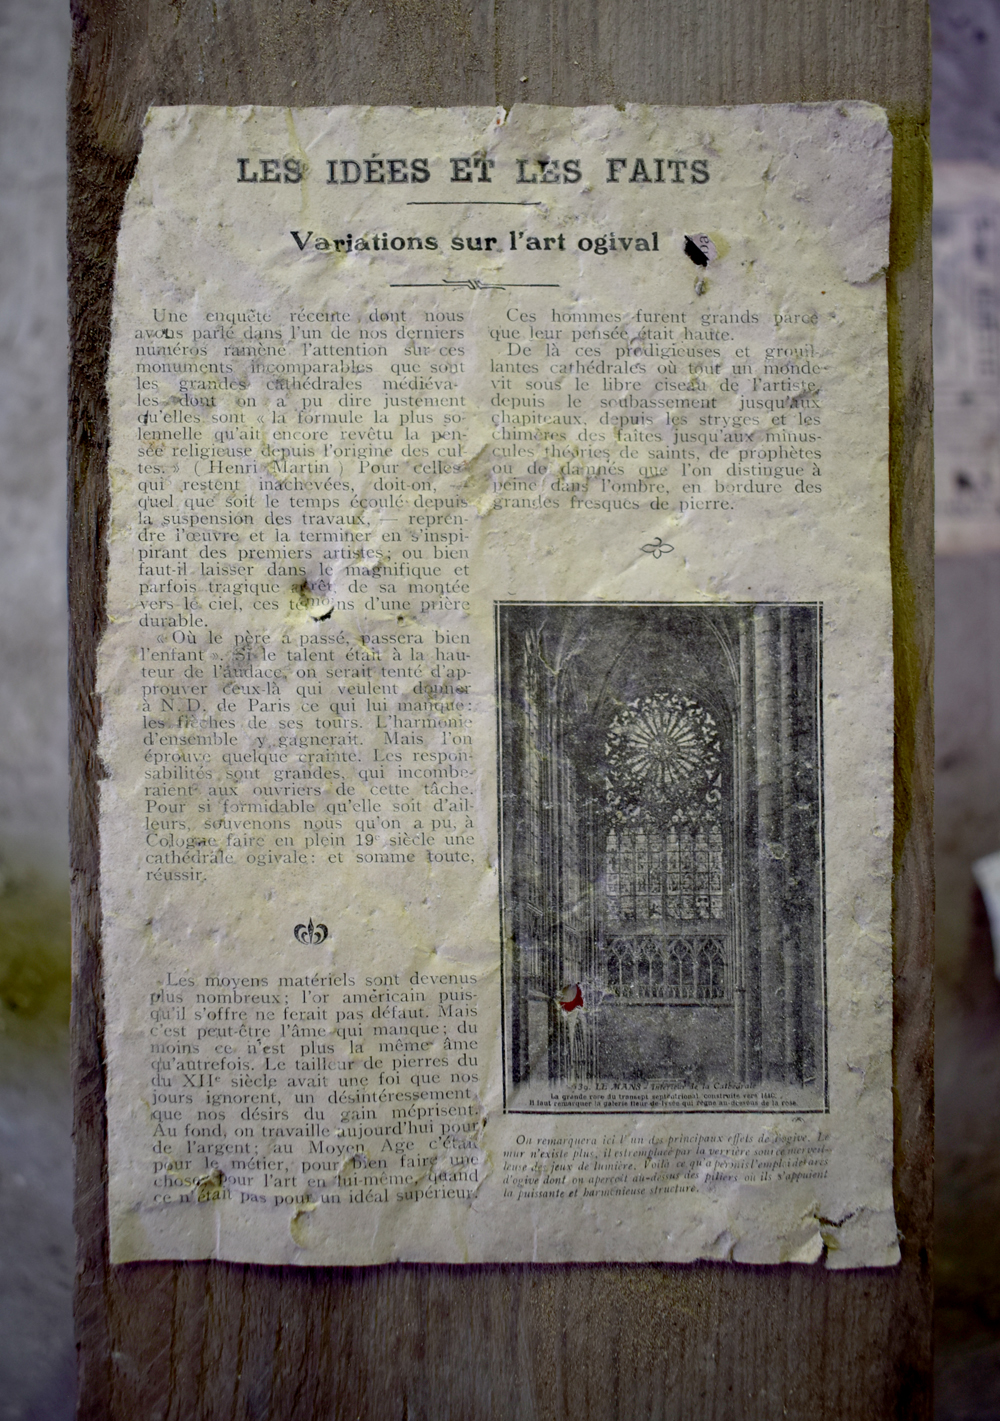 LES IDÉES ET LES FAITS
Variations sur l'art ogival
Une enquête récente dont nous
avons parlé dans l'un de nos derniers
numéros ramène l'attention sur ces
monuments incomparables que sont
les grandes cathédrales médiéva-
les dont on a pu dire justement
qu'elles sont « la formule la plus so-
lennelle qu'ait encore revêtu la pen-
sée religieuse depuis l'origine des cul-
tes. » ( Henri Martin ) Pour celles
qui restent inachevées, doit-on, —
quel que soit le temps écoulé depuis
la suspension des travaux, — repren-
dre l'œuvre et la terminer en s'inspi-
pirant des premiers artistes ; ou bien
faut-il laisser dans le magnifique et
parfois tragique arrêt de sa montée
vers le ciel, ces témoins d'une prière
durable.
« Où le père a passé, passera bien
l'enfant ». Si le talent était à la hau-
teur de l'audace, on serait tenté d'ap-
prouver ceux-là qui veulent donner
à N. D. de Paris ce qui lui manque :
les flèches de ses tours. L'harmonie
d'ensemble y gagnerait. Mais l'on
éprouve quelque crainte. Les respon-
sabilités sont grandes, qui incombe-
raient aux ouvriers de cette tâche.
Pour si formidable qu'elle soit d'ail-
leurs, souvenons nous qu'on a pu, à
Cologne faire en plein 19e siècle une
cathédrale ogivale : et somme toute,
réussir.
Les moyens matériels sont devenus
plus nombreux ; l'or américain puis-
qu'il s'offre ne ferait pas défaut. Mais
c'est peut-être l'âme qui manque ; du
moins ce n'est plus la même âme
qu'autrefois. Le tailleur de pierres du
du XIIe siècle avait une foi que nos
jours ignorent, un désintéressement
que nos désirs du gain méprisent.
Au fond, on travaille aujourd'hui pour
de l'argent ; au Moyen Age c'était
pour le métier, pour bien faire une
chose, pour l'art en lui-même, quand
ce n'était pas pour un idéal supérieur.
Ces hommes furent grands parce
que leur pensée était haute.
De là ces prodigieuses et grouil-
lantes cathédrales où tout un monde
vit sous le libre ciseau de l'artiste,
depuis le soubassement jusqu'aux
chapiteaux, depuis les stryges et les
chimères des faîtes jusqu'aux minus-
cules théories de saints, de prophètes
ou de damnés que l'on distingue à
peine dans l'ombre, en bordure des
grandes fresques de pierre.
LE MANS - Intérieur de la Cathédrale
La grande rose du transept septentrional, construite vers
Il faut remarquer la galerie fleur de lysée qui règne au-dessous de la rose.
On remarquera ici l'un des principaux effets de l'ogive. Le
mur n'existe plus, il est remplacé par la verrière source merveil-
leuse des jeux de lumière. Voilà ce qu'a permis l'emploi des arcs
d'ogive dont on aperçoit au-dessus des piliers où ils s'appuient
la puissante et harmonieuse structure.